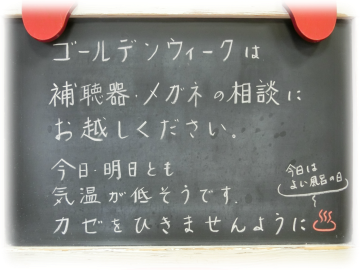 ゴールデンウィークは
補聴器・メガネの相談に
お越しください。
今日・明日とも
気温が低そうです.
カゼをひきませんように♨
今日は
よい風呂の日